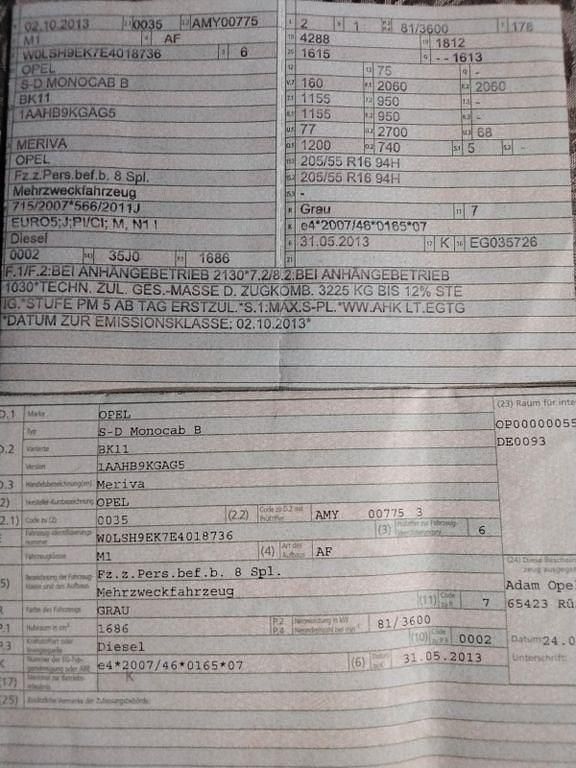 02.10.2013 0035 AMY00775 2 1 81/3600 178
M1 AF 4288 1812
W0LSH9EK7E4018736 6 1615 - - 1613
OPEL 75 -
S-D MONOCAB B 160 2060 2060
BK11 1155 950 -
1AAHB9KGAG5 1155 950 -
77 2700 68
MERIVA 1200 740 5 -
OPEL 205/55 R16 94H
Fz.z.Pers.bef.b. 8 Spl. 205/55 R16 94H
Mehrzweckfahrzeug -
715/2007*566/2011J Grau 7
EURO5;J;PI/CI; M, N1 I e4*2007/46*0165*07
Diesel 31.05.2013 K EG035726
0002 35J0 1686
F.1/F.2:BEI ANHÄNGEBETRIEB 2130*7.2/8.2:BEI ANHÄNGEBETRIEB
1030*TECHN. ZUL. GES.-MASSE D. ZUGKOMB. 3225 KG BIS 12% STE
IG.*STUFE PM 5 AB TAG ERSTZUL.*S.1:MAX.S-PL.*WW.AHK LT.EGTG
*DATUM ZUR EMISSIONSKLASSE: 02.10.2013*
(23) Raum für inte
D.1 Marke OPEL
OP00000055
Typ S-D Monocab B
DE0093
D.2 Variante BK11
Version 1AAHB9KGAG5
D.3 Handelsbezeichnung(en) Meriva
2) Hersteller-Kurzbezeichnung OPEL
2.1) Code zu (2) 0035 (2.2) Code zu D.2 mit Prüfziffer AMY 00775 3
Fahrzeug-Identifizierungsnummer W0LSH9EK7E4018736 (3) Prüfziffer zur Fahrzeug-Identifizierung 6
Fahrzeugklasse M1 (4) Art des Aufbaus AF
(24) Diese Beschein
zeug ausgegeb
5) Bezeichnung der Fahrzeugklasse und des Aufbaus Fz.z.Pers.bef.b. 8 Spl.
Mehrzweckfahrzeug
Adam Ope
R Farbe des Fahrzeugs GRAU (11) Code zu R 7
65423 Rü
P.1 Hubraum in cm³ 1686 P.2 P.4 Nennleistung in kW Nenndrehzahl bei min⁻¹ 81/3600
P.3 Kraftstoffart oder Energiequelle Diesel (10) Code zu P.3 0002
Datum 24.0
K Nummer der EG-Typgenehmigung oder ABE e4*2007/46*0165*07 (6) Datum zu K 31.05.2013
Unterschrift:
(17) Merkmal zur Betriebserlaubnis K
(25) Zusätzliche Vermerke der Zulassungsbehörde: